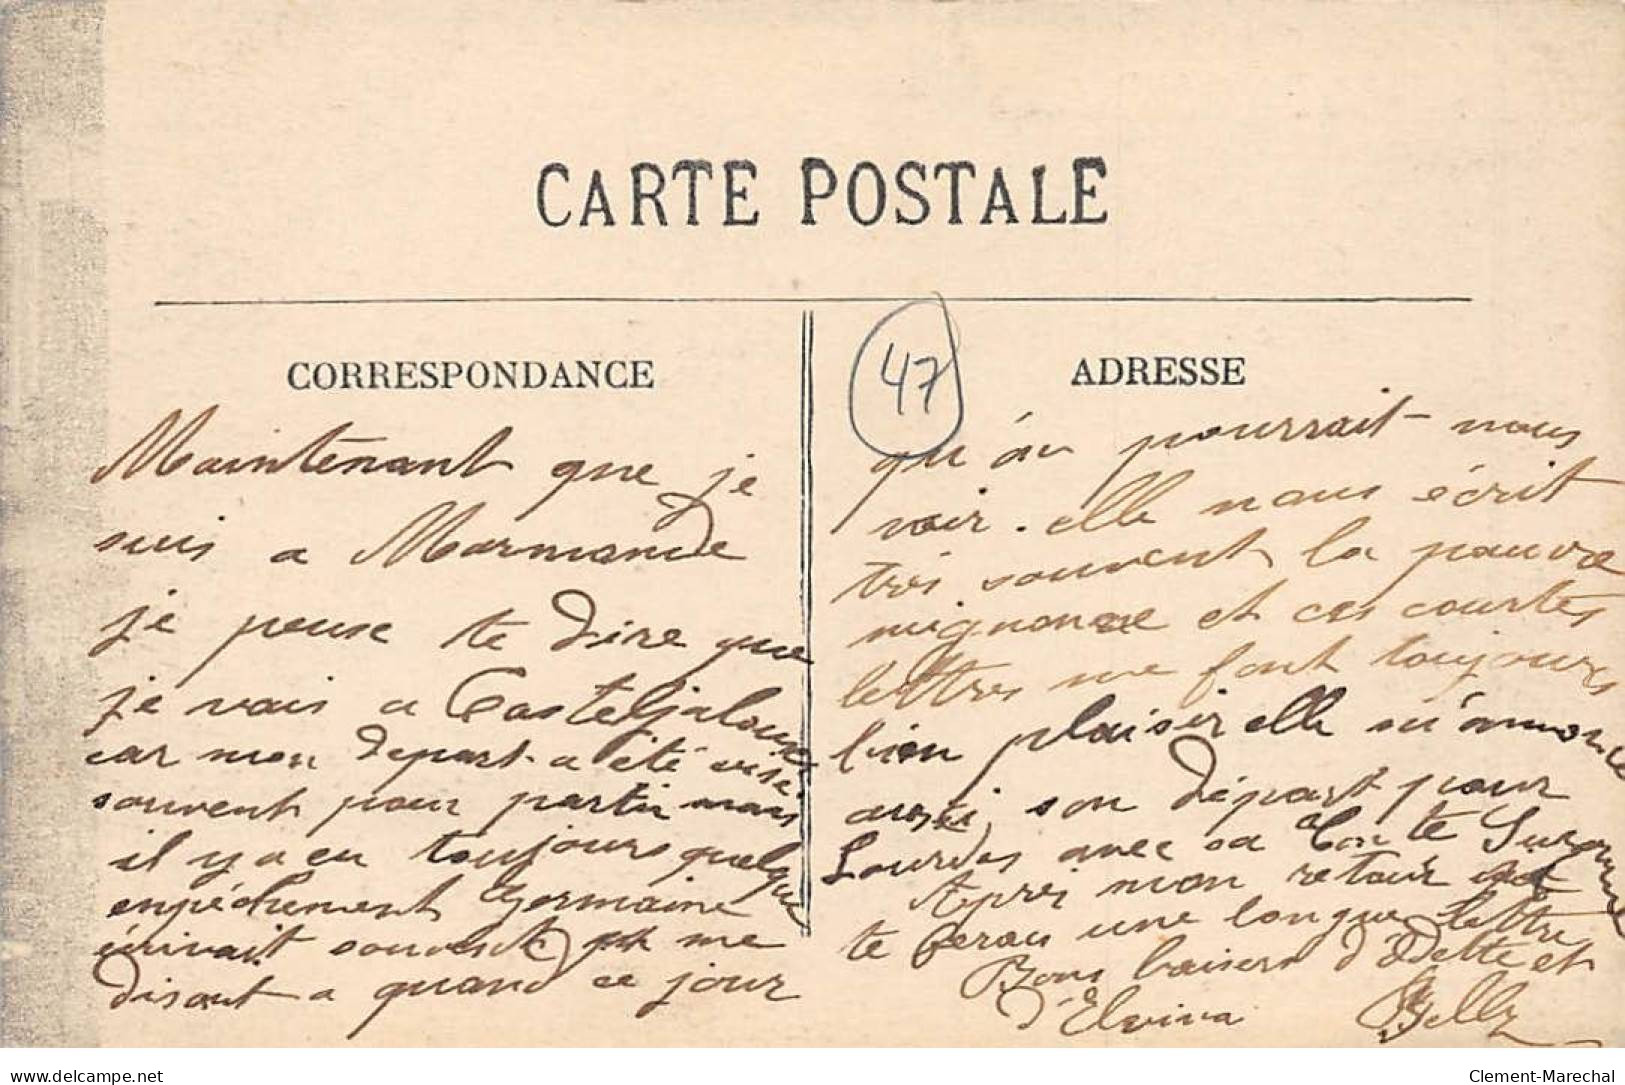 CARTE POSTALE
CORRESPONDANCE
Maintenant que je
suis a Marmande
je peuse te dire que
je vais a Casteljaloux
car mon depart a été visé
souvent pour partir mais
il y a eu toujours quelque
enpéchement Germaine
écrivait souvent me
disant a quand ce jour
47
ADRESSE
qu'on pourrait nous
voir. elle nous écrit
très souvent la pauvre
mignonne et ces courtes
lettres me font toujours
bien plaisir elle m'annonce
aussi son départ pour
Lourdes avec sa Tante Suzanne
Après mon retour
te ferau une longue lettre
Bons baisers d'Odette et
d'Elvina Belly
delcampe.net
Clement-Marechal